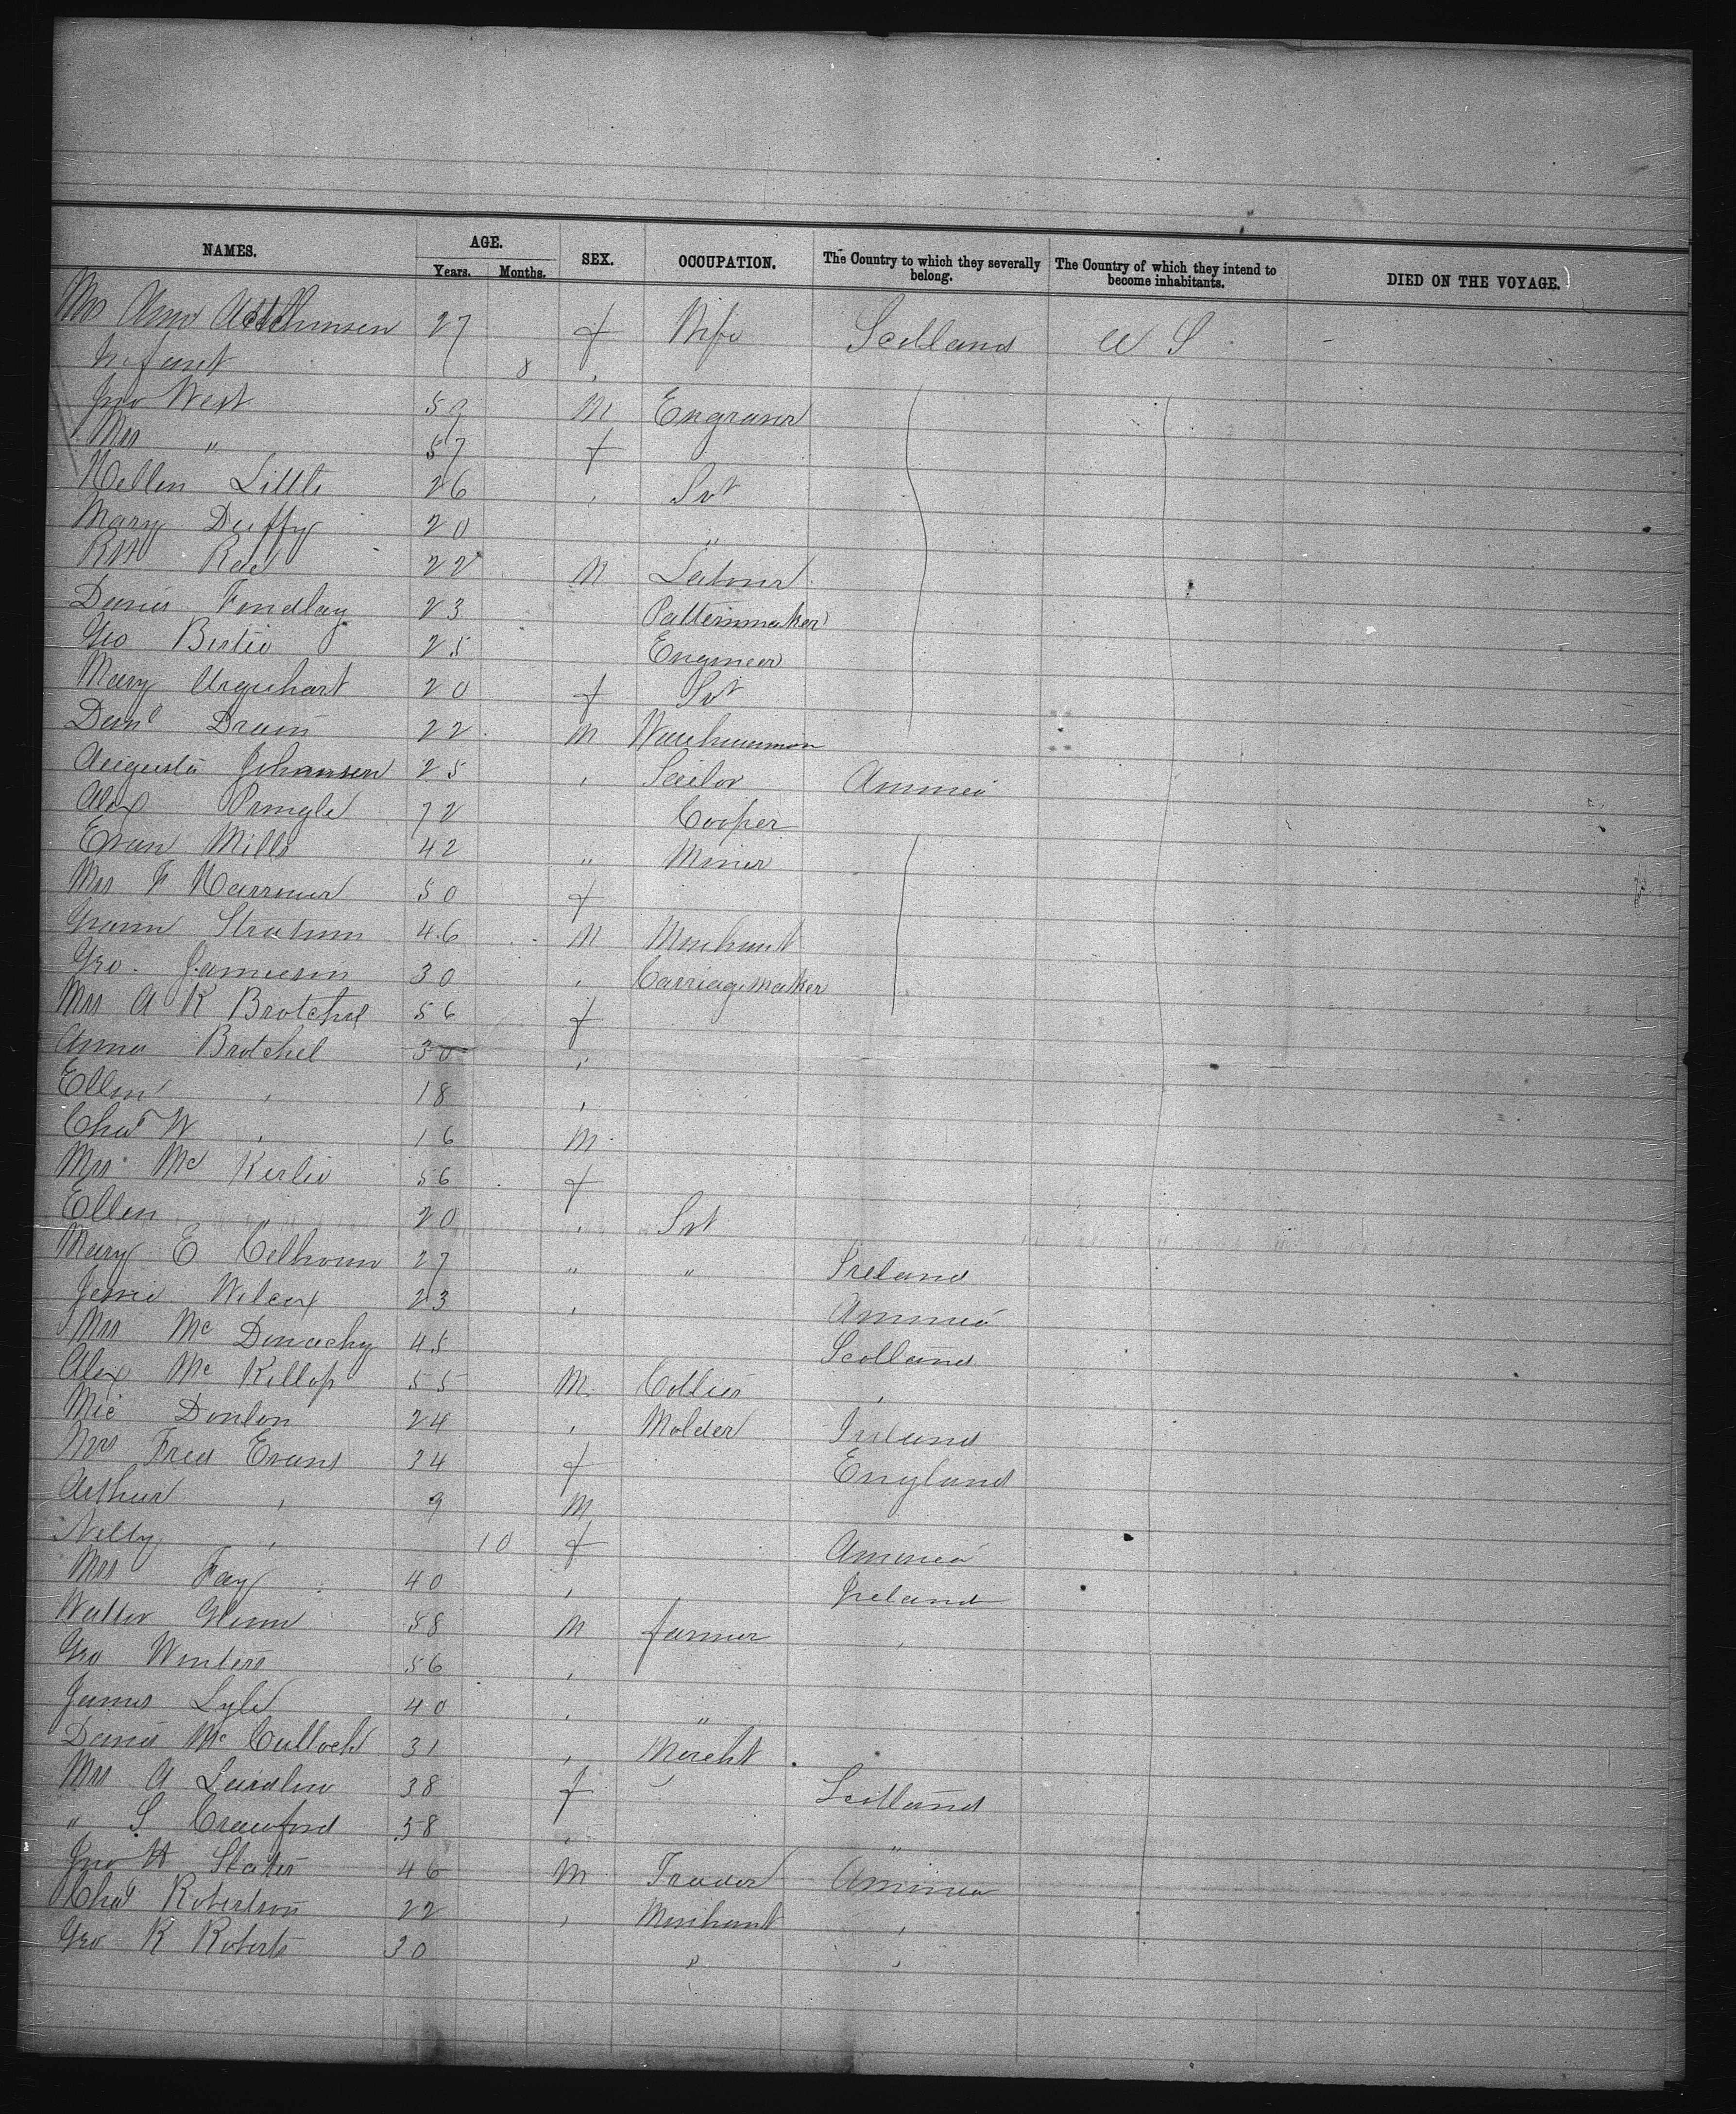 NAMES. AGE. Years. Months. SEX. OCCUPATION. The Country to which they severally belong. The Country of which they intend to become inhabitants. DIED ON THE VOYAGE.
Mrs Ann 27 f Wife Scotland U S -
Infant 8 ,
Jno West 59 M Engraver
Mrs " 57 f
Hellen Little 26 , Svt
Mary Duffy 20 "
Robt Rae 22 M Labourer
Findlay 23 Patternmaker
Geo 25 Engineer
Mary Urquhart 20 f Svt
Danl 22 M Warehouseman
Augusta Johansen 25 , Sailor America
Alex Pringle 72 Cooper
Evan Mills 42 " Miner
Mrs F 50 f
46 M Merchant
Geo. Jamieson 30 , Carriagemaker
Mrs A K Brotchel 56 f
Anna Brotchel 30 ,
Ellen , 18 ,
Chas W , 16 M
Mrs Mc Kerlie 56 f
Ellen " 20 , Svt
Mary E Colhoun 27 " " Ireland
Jessie Wilcox 23 , America
Mrs Mc Donachy 45 Scotland
Alex Mc Killop 55 M. Collier ,
Mic Donlon 24 , Molder Ireland
Mrs Fred Evans 34 f England
Arthur , 9 M
Nelly , 10 f America
Mrs Fay 40 , Ireland
Walter Glenn 58 M farmer ,
Geo Winters 56 ,
James Lyle 40 , "
Mc Culloch 31 , Mercht
Mrs A Laidlaw 38 f Scotland
" S Crawford 58 , "
Jno H Slater 46 M Trader America
Chas Robertson 22 , Merchant ,
Geo R Roberts 30 " ,